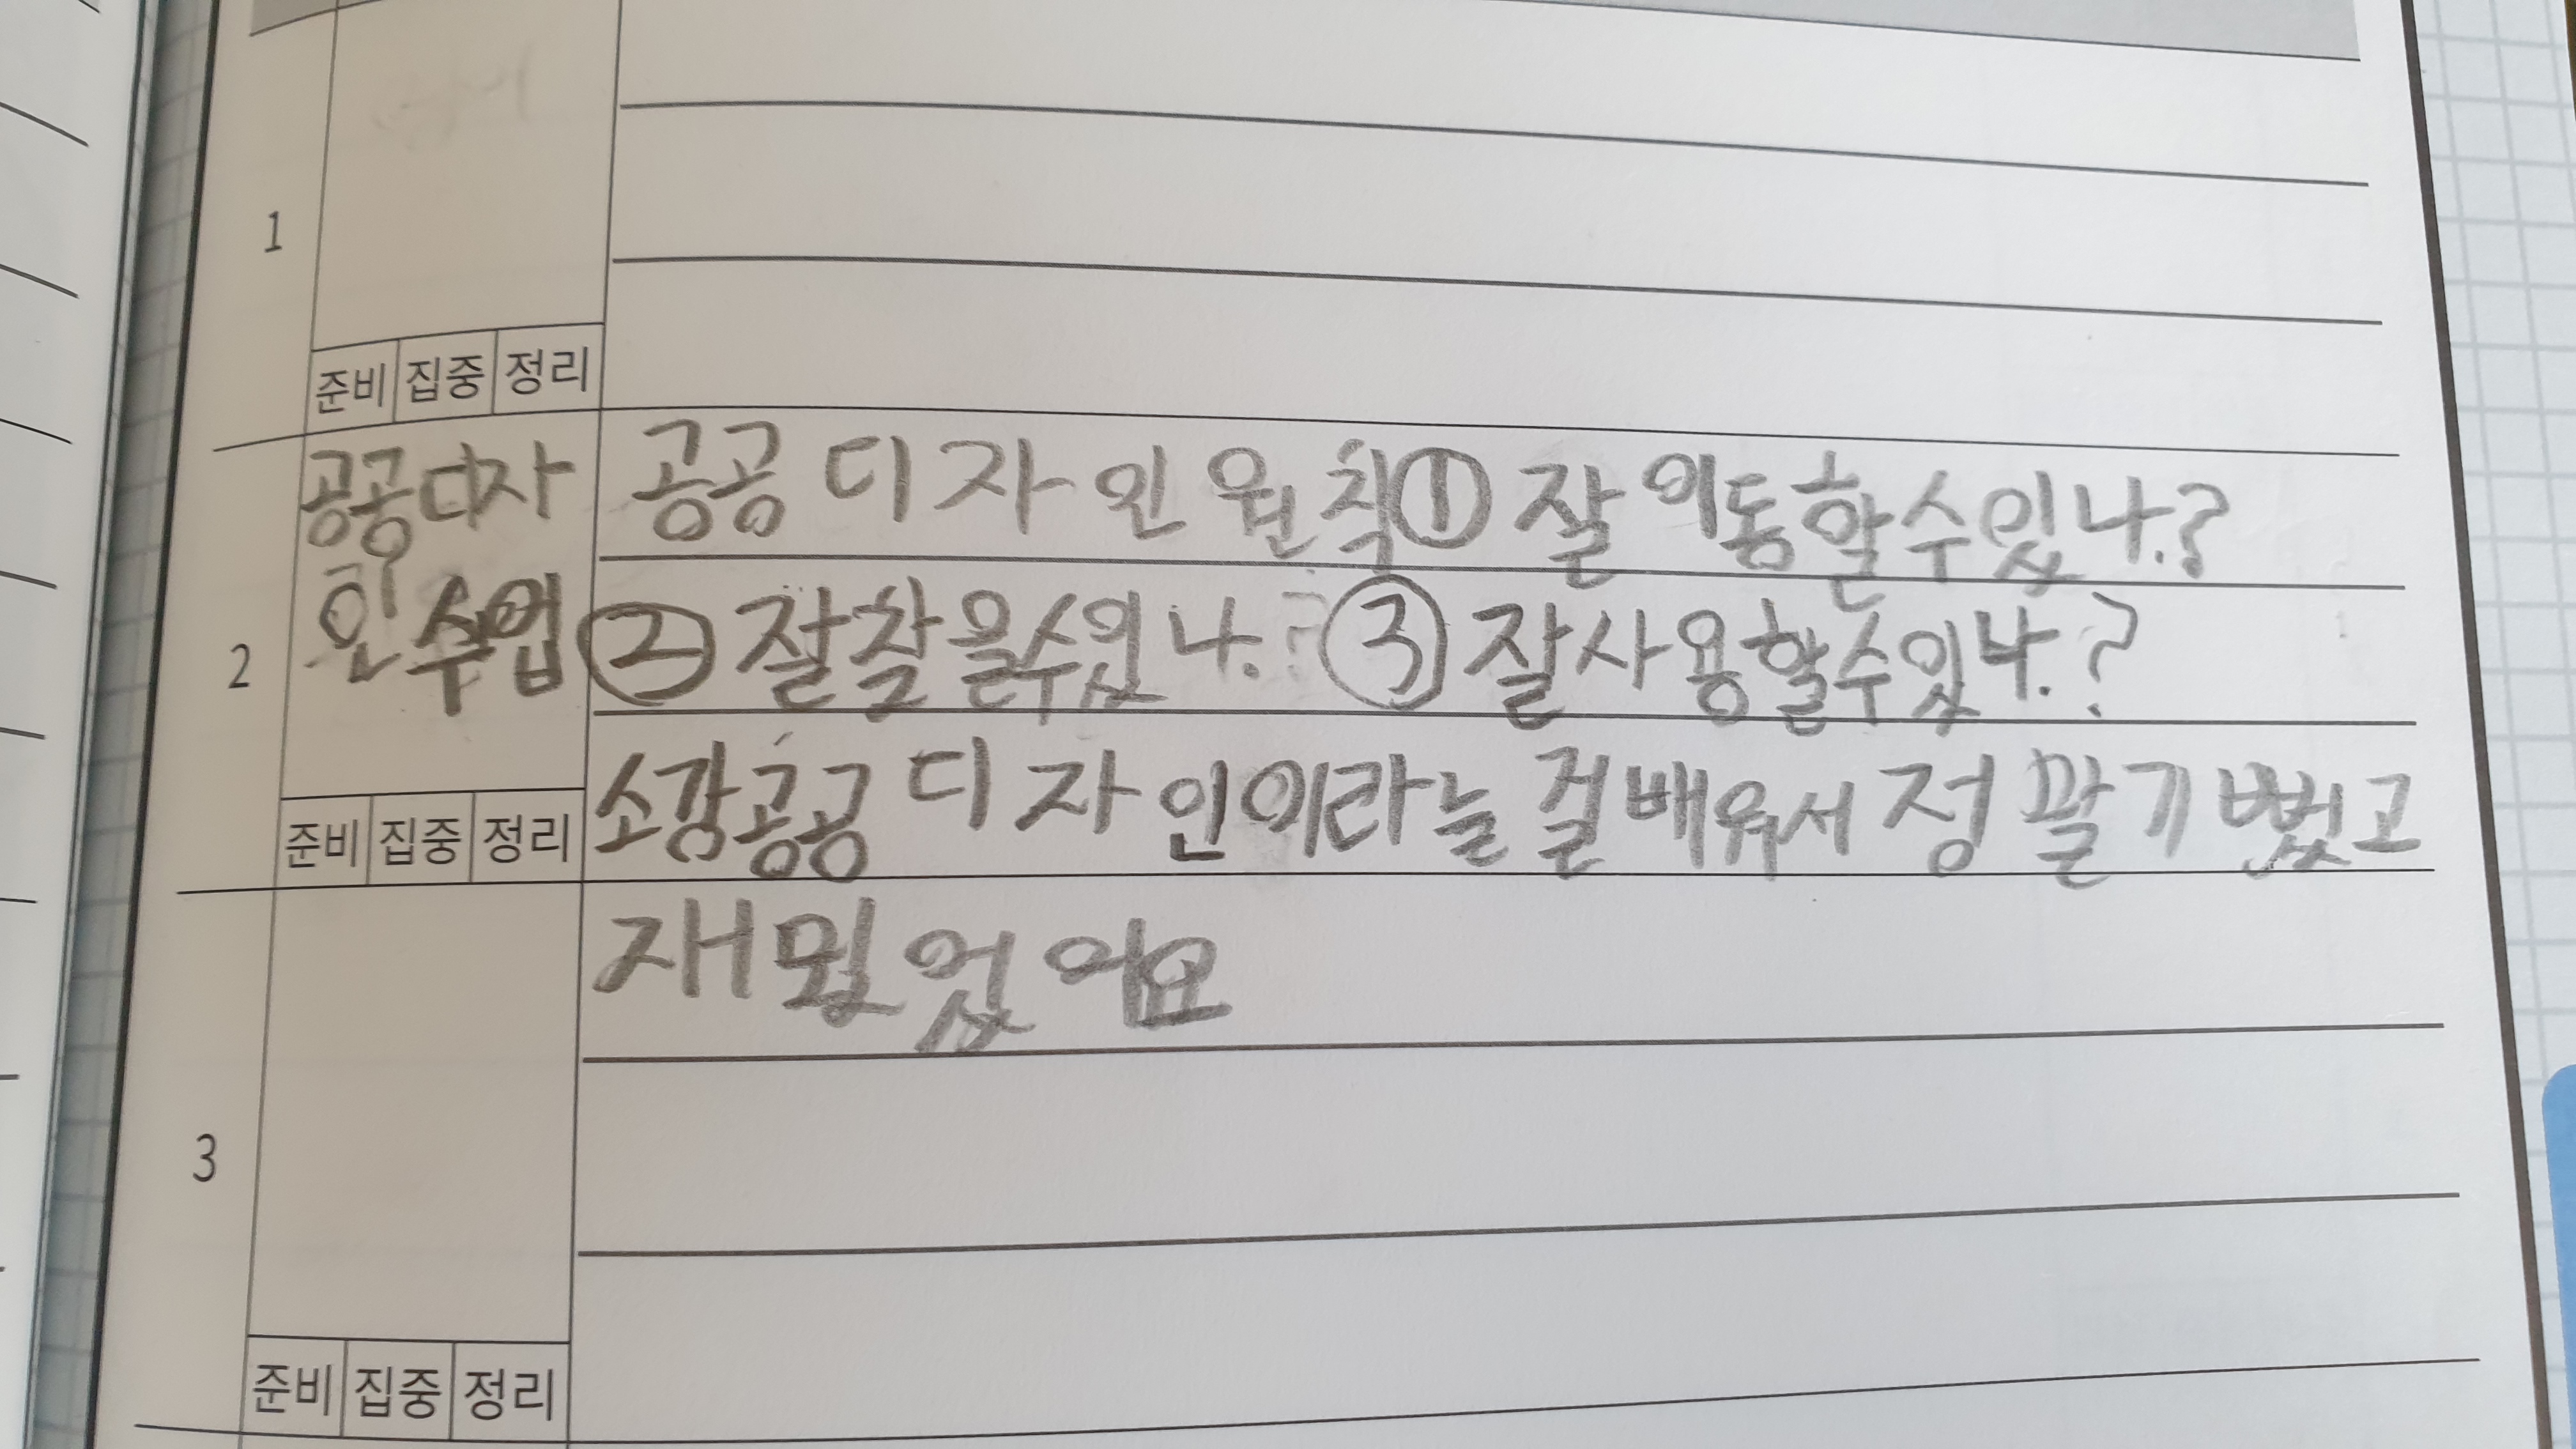 1
준비 집중 정리
공공디자
인 수업
공공 디자인 원칙① 잘 이동할수있나.?
② 잘찾을수있나.? ③ 잘사용할수있나.?
소감공공 디자인이라는 걸배워서 정말기뻤고
2
준비 집중 정리
재밌었어요
3
준비 집중 정리